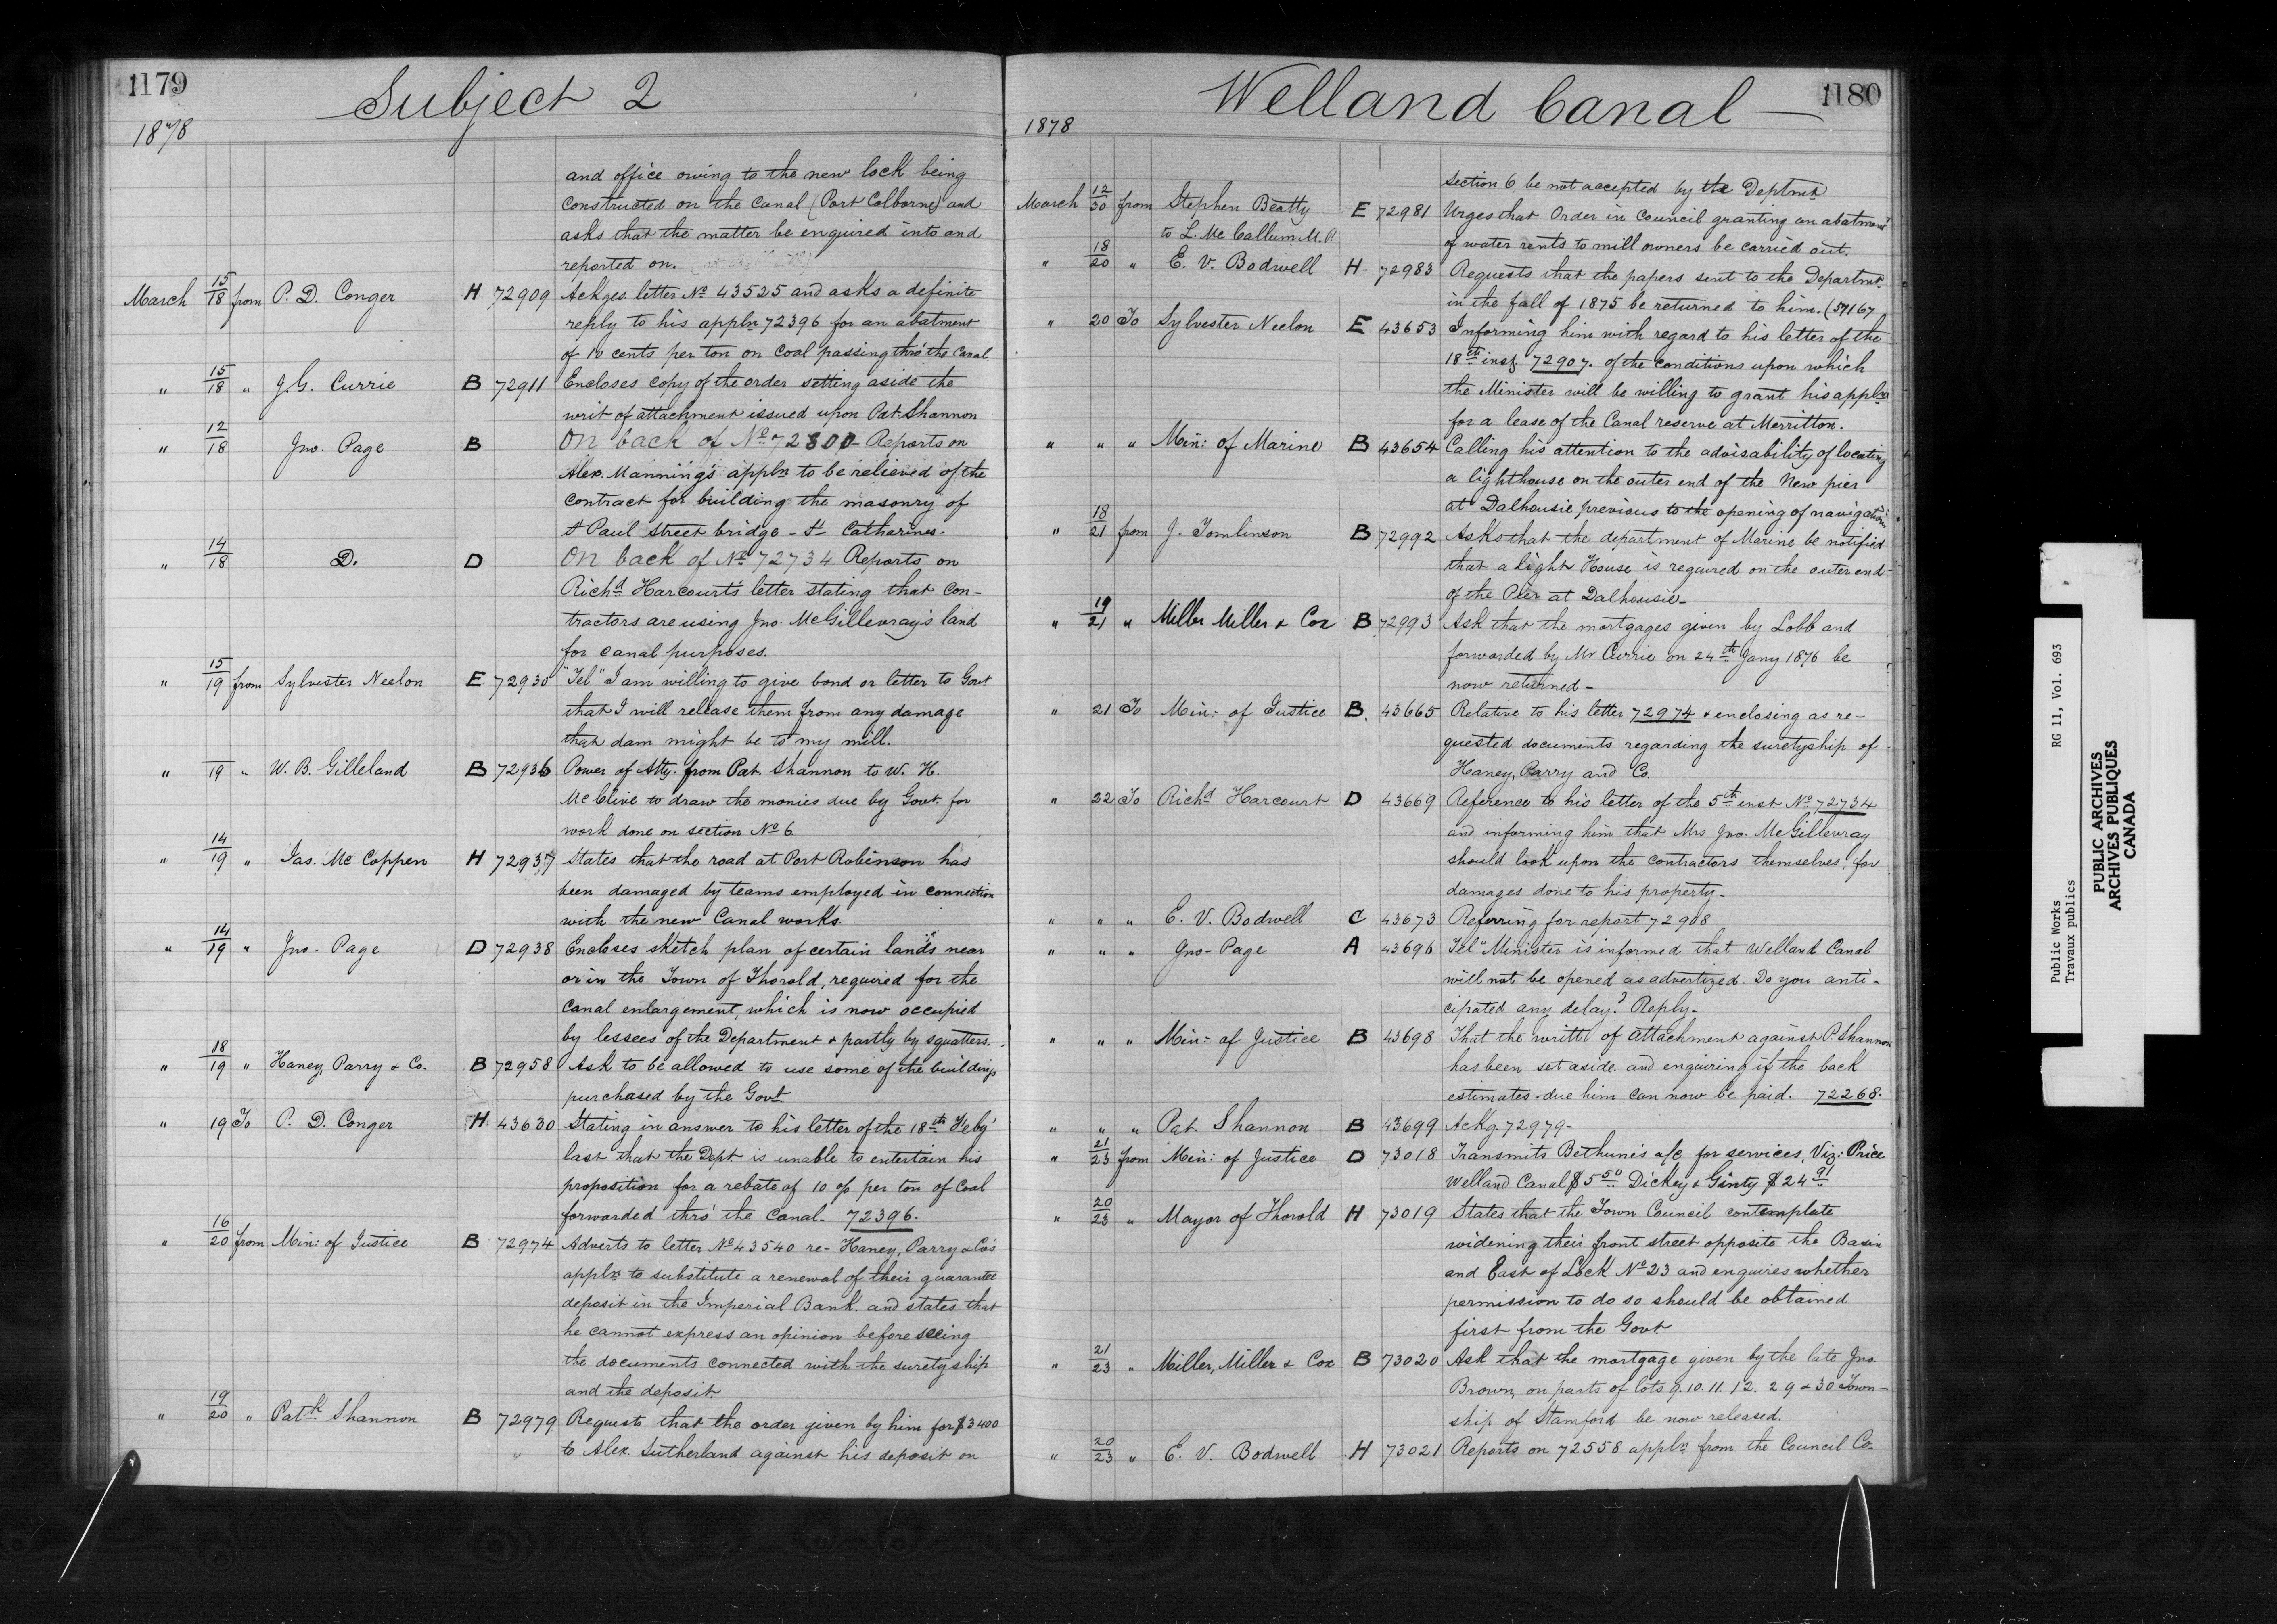 1179
Subject 2
1878
and office owing to the new lock being
constructed on the Canal (Port Colborne) and
asks that the matter be enquired into and
reported on.
March 15/18 from P. D. Conger H 72909 Ackges letter No 43525 and asks a definite
reply to his appln 72396 for an abatment
of 10 cents per ton on Coal passing thro' the Canal
" 15/18 " J. G. Currie B 72911 Encloses copy of the order setting aside the
writ of attachment issued upon Pat. Shannon
" 12/18 Jno. Page B On back of No 72800 Reports on
Alex. Manning's appln to be relieved of the
contract for building the masonry of
St Paul Street bridge - St Catharines.
" 14/18 D. D On back of No 72734 Reports on
Richd Harcourt's letter stating that con-
tractors are using Jno. McGillevray's land
for canal purposes.
" 15/19 from Sylvester Neelon E 72930 "Tel" I am willing to give bond or letter to Govt
that I will release them from any damage
that dam might be to my mill.
" 19 " W. B. Gilleland B 72936 Power of Atty. from Pat. Shannon to W. H.
McClive to draw the monies due by Govt. for
work done on section No 6
" 14/19 " Jas. McCoppen H 72937 States that the road at Port Robinson has
been damaged by teams employed in connection
with the new Canal works.
" 14/19 " Jno. Page D 72938 Encloses sketch plan of certain lands near
or in the Town of Thorold, required for the
Canal enlargement, which is now occupied
by lessees of the Department & partly by squatters.
" 18/19 " Haney, Parry & Co. B 72958 Ask to be allowed to use some of the buildings
purchased by the Govt
" 19 To P. D. Conger H 43630 Stating in answer to his letter of the 18th Feby
last that the Dept is unable to entertain his
proposition for a rebate of 10 c/o per ton of Coal
forwarded thro' the Canal. 72396.
" 16/20 from Min: of Justice B 72974 Adverts to letter No 43540 re- Haney, Parry & Co's
appln to substitute a renewal of their guarantee
deposit in the Imperial Bank. and states that
he cannot express an opinion before seeing
the documents connected with the suretyship
and the deposit.
" 19/20 " Patk Shannon B 72979 Requests that the order given by him for $3400
to Alex. Sutherland against his deposit on
1180
Welland Canal
1878
section 6 be not accepted by the Deptmt
March 12/30 from Stephen Beatty E 72981 Urges that Order in Council granting an abatment
to L. McCallum M.P. of water rents to mill owners be carried out.
" 18/20 " E. V. Bodwell H 72983 Requests that the papers sent to the Departmt.
in the fall of 1875 be returned to him. (59167
" 20 To Sylvester Neelon E 43653 Informing him with regard to his letter of the
18th inst. 72907. of the conditions upon which
the Minister will be willing to grant his appln
for a lease of the Canal reserve at Merritton.
" " " Min: of Marine B 43654 Calling his attention to the advisability of locating
a lighthouse on the outer end of the New pier
at Dalhousie previous to the opening of navigation
" 18/21 from J. Tomlinson B 72992 Asks that the department of Marine be notified
that a Light House is required on the outer end
of the Pier at Dalhousie-
" 19/21 " Miller Miller & Cox B 72993 Ask that the mortgages given by Lobb and
forwarded by Mr Currie on 24th Jany 1876 be
now returned-
" 21 To Min: of Justice B. 43665 Relative to his letter 72974 & enclosing as re-
quested documents regarding the suretyship of
Haney, Parry and Co.
" 22 To Richd Harcourt D 43669 Reference to his letter of the 5th inst No 72734
and informing him that Mrs Jno. McGillevray
should look upon the contractors themselves for
damages done to his property.
" " " E. V. Bodwell C 43673 Referring for report 72908
" " " Jno- Page A 43696 Tel" Minister is informed that Welland Canal
will not be opened as advertized. Do you anti-
cipated any delay? Reply-
" " " Min: of Justice B 43698 That the writt of attachment against P. Shannon
has been set aside and enquiring if the back
estimates due him can now be paid. 72268.
" " " Pat. Shannon B 43699 Ackg 72979-
" 21/23 from Min: of Justice D 73018 Transmits Bethune's a/c for services, Viz: Price
Welland Canal $5.50 Dickey & Ginty $24.91
" 20/23 " Mayor of Thorold H 73019 States that the Town Council contemplate
widening their front street opposite the Basin
and East of Lock No 23 and enquires whether
permission to do so should be obtained
first from the Govt
" 21/23 " Miller, Miller & Cox B 73020 Ask that the mortgage given by the late Jno.
Brown, on parts of lots 9. 10. 11. 12. 29 & 30 Town-
ship of Stamford be now released.
" 20/23 " E. V. Bodwell H 73021 Reports on 72558 appln from the Council Co.
Public Works RG 11, Vol. 693
Travaux publics
PUBLIC ARCHIVES
ARCHIVES PUBLIQUES
CANADA